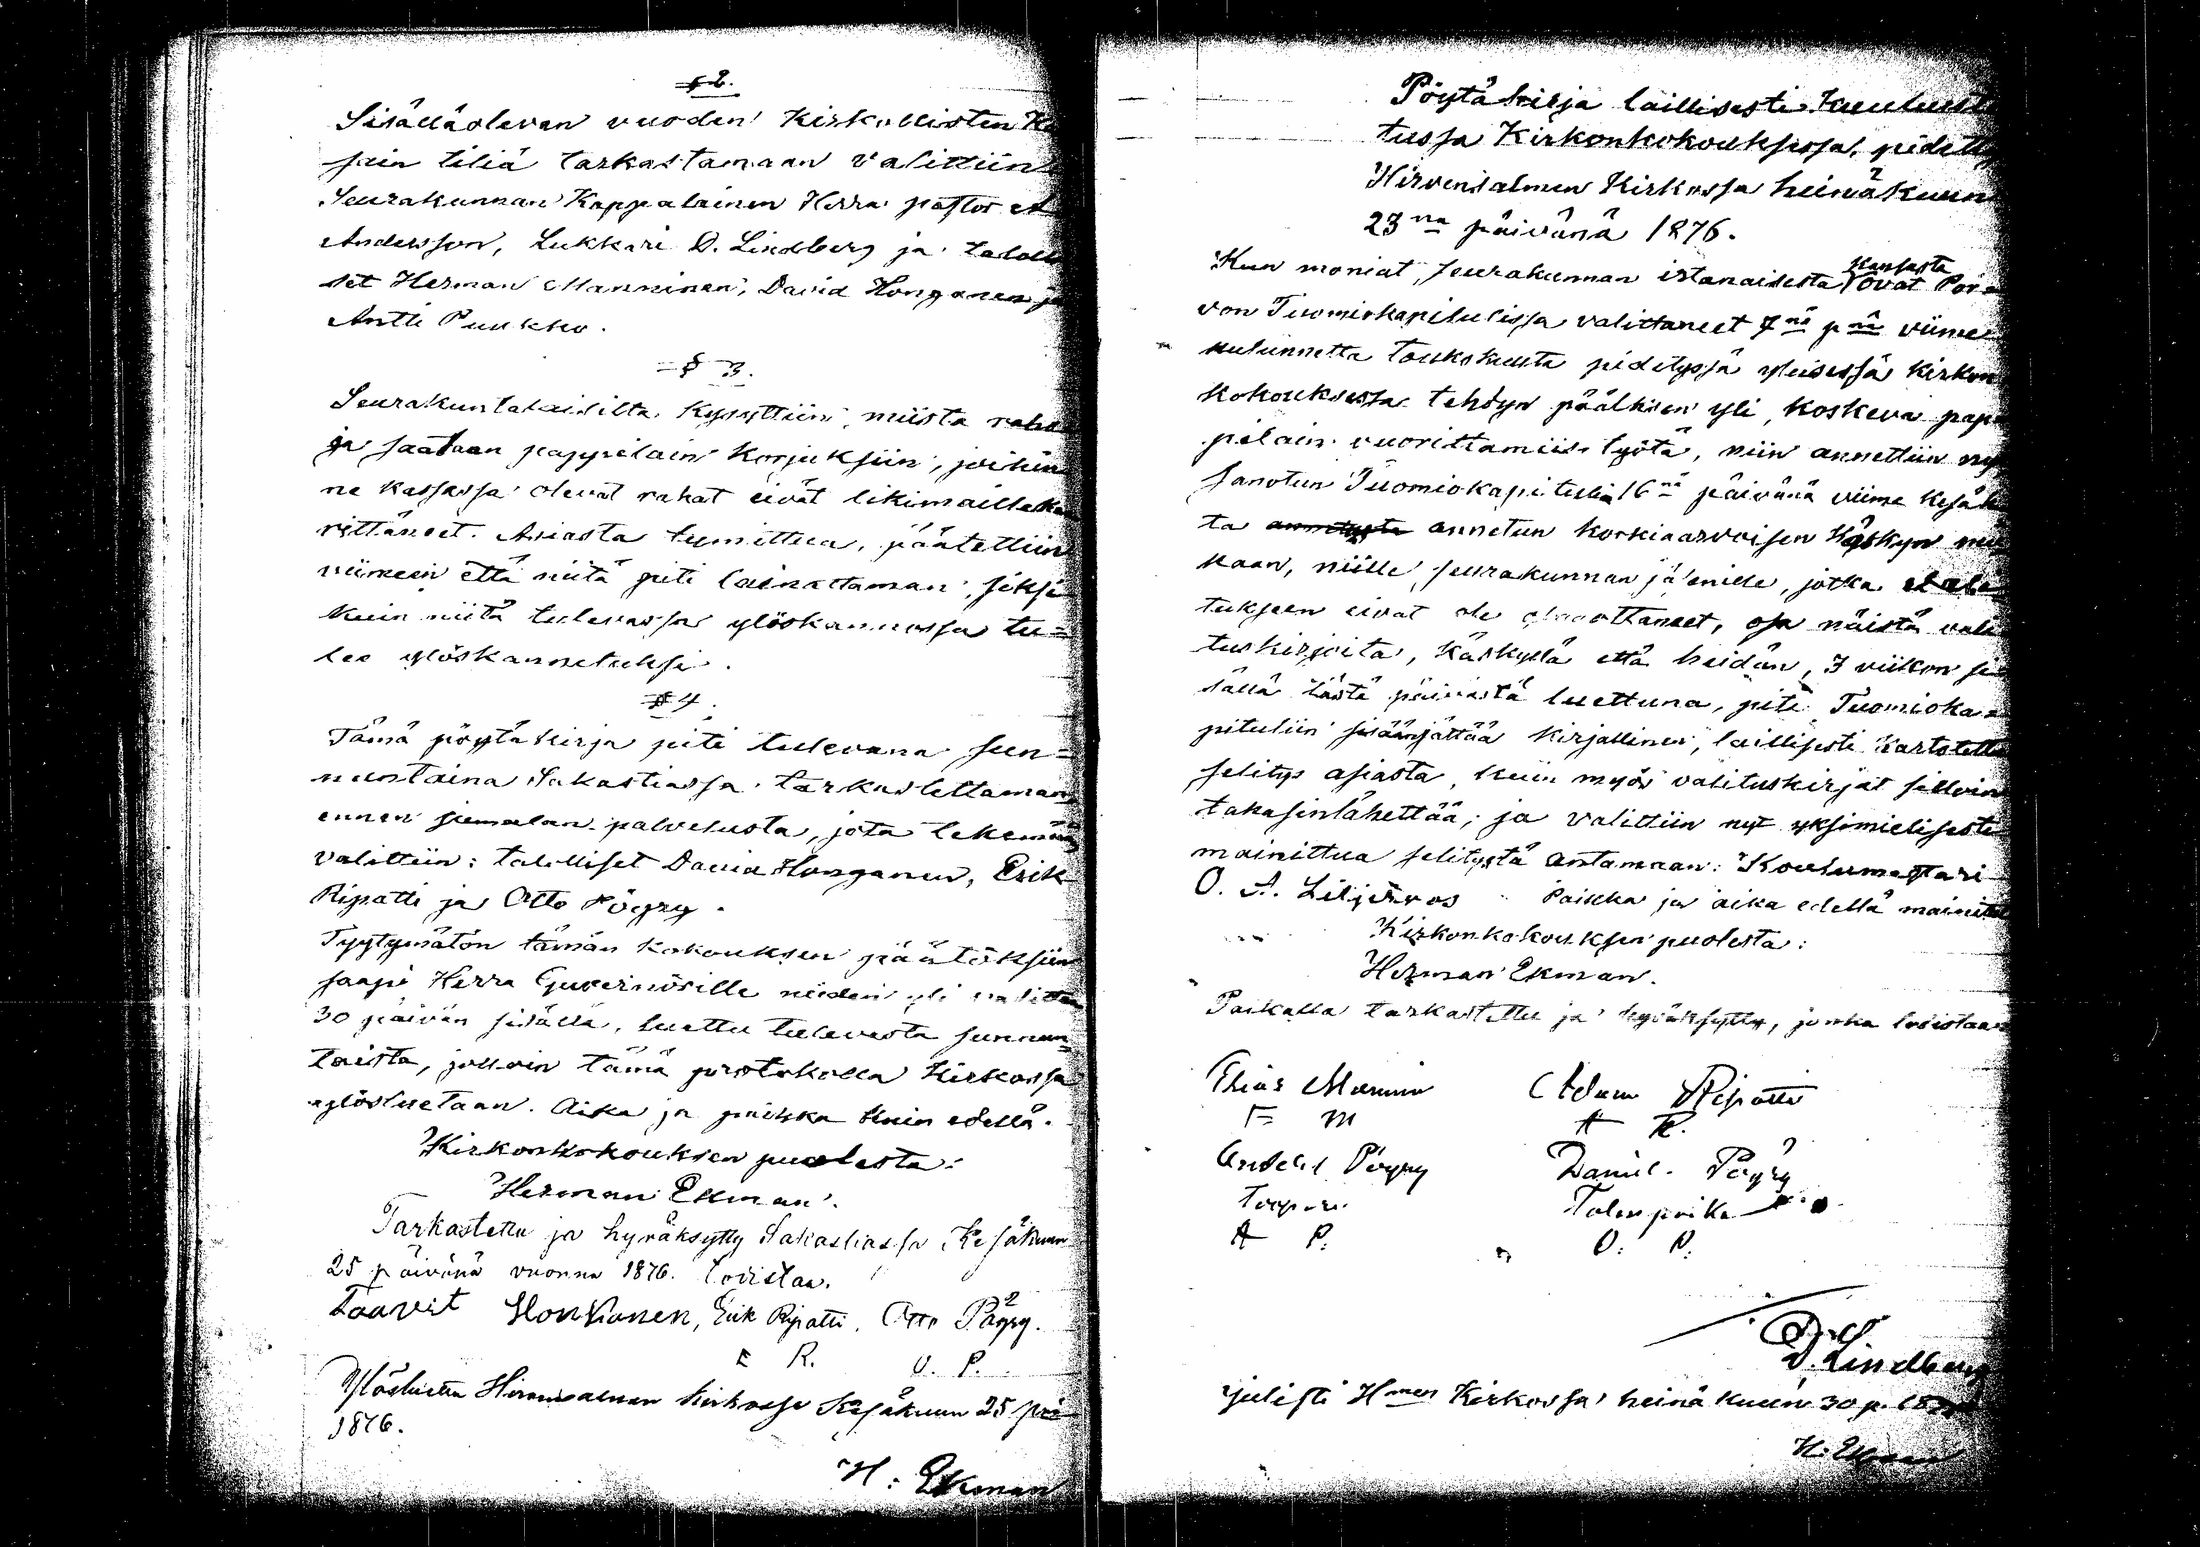 § 2.
Sisälläolevan vuoden Kirkollisten Ka
sain tiliä tarkastamaan valittiin
Seurakunnan Kappalainen Herra pastor A
Andersson, Lukkari D. Lindberg ja talolli
set Herman Manninen, David Honganen ja
Antti Puukko.
§ 3.
Seurakuntalaisilta kysyttiin, mistä raho
ja saataan pappilain korjuksiin, joihin
ne kassassa olevat rahat eivät likimailleka
rittäneet. Asiasta tuumittua, päätettiin
viimein että niitä piti lainattaman, siksi
kuin niitä tulevassa ylöskannossa tu=
lee ylöskannetuksi.
§ 4.
Tämä pöytäkirja piti tulevana sun=
nuntaina Sakastiassa tarkastettaman
ennen jumalan palvelusta, jota tekemään
valittiin: talolliset David Honganen, Erik
Ripatti ja Otto Pöyry.
Tyytymätön tämän kokouksen päätöksiin
saapi Herra Guvernörille niiden yli valittaa
30 päivän sisällä, luettu tulevasta sunnun=
taista, jolloin tämä protokolla Kirkossa
ylösluetaan. Aika ja paikka kuin edellä.
Kirkonkokouksen puolesta:
Herman Ekman.
Tarkastettu ja hyväksytty Sakastiassa Kesäkuun
25 päivänä vuonna 1876. todistaa.
Taavit Honkanen, Erik Ripatti, Otto Pöyry.
E R. O. P.
Ylösluettu Hirvensalmen kirkossa Kesäkuun 25 p
1876.
H: Ekman
Pöytäkirja laillisesti kuulute
tussa Kirkonkokouksessa, pidetty
Hirvensalmen Kirkossa heinäkuun
23na päivänä 1876.
Kun moniat, seurakunnan istanaisesta kansasta ovat Por=
von Tuomiokapitulissa valittaneet 7nä pnä viime
kulunnetta toukokuuta pidetyssä yleisessä kirkon
kokouksessa tehdyn päätksen yli, koskeva pap
pilain vuorittamiis työtä, niin annettiin ny
sanotun Tuomiokapitulin 16nä päivänä viime kesäk
ta annetun korkiaarvoisen Käskyn mu
kaan, niille, seurakunnan jäsenille, jotka
tukseen eivät ole ottaneet, osa näistä vali
tuskirjoita, käskyllä että heidän, 3 viikon si
sällä tästä päivästä luettuna, piti Tuomioka=
pituliin sisäänjättää kirjallinen, laillisesti kartotettu
selitys asiasta, kuin myös valituskirjat silloin
takasinlähettää; ja valittiin nyt yksimielisesti
mainittua selitystä antamaan: Koulumestari
O. A. Liljeroos Paikka ja aika edellä mainittu
Kirkonkokouksen puolesta:
Herman Ekman.
Paikalla tarkastettu ja hyväksytty, jonka todistaa
Elias Adam Ripatti
E M A R.
Pöyry Daniel Pöyry
A P. D: P.
D. Lindberg
julisti Hmen Kirkossa heinäkuun 30 p.
H: Ekman